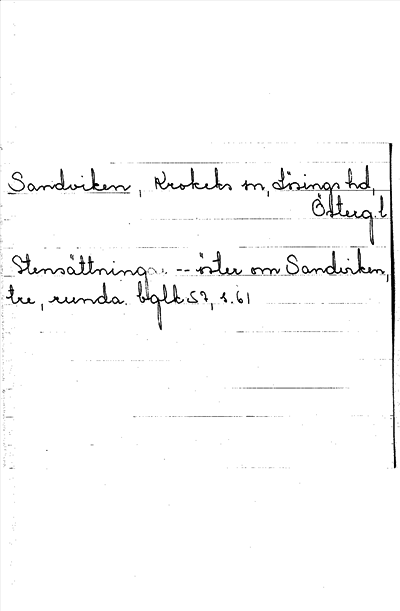 Sandviken, Krokeks sn, Lösings hd,
Österg. l
Stensättningar -- öster om Sandviken,
tre, runda. bglk 57, s. 61